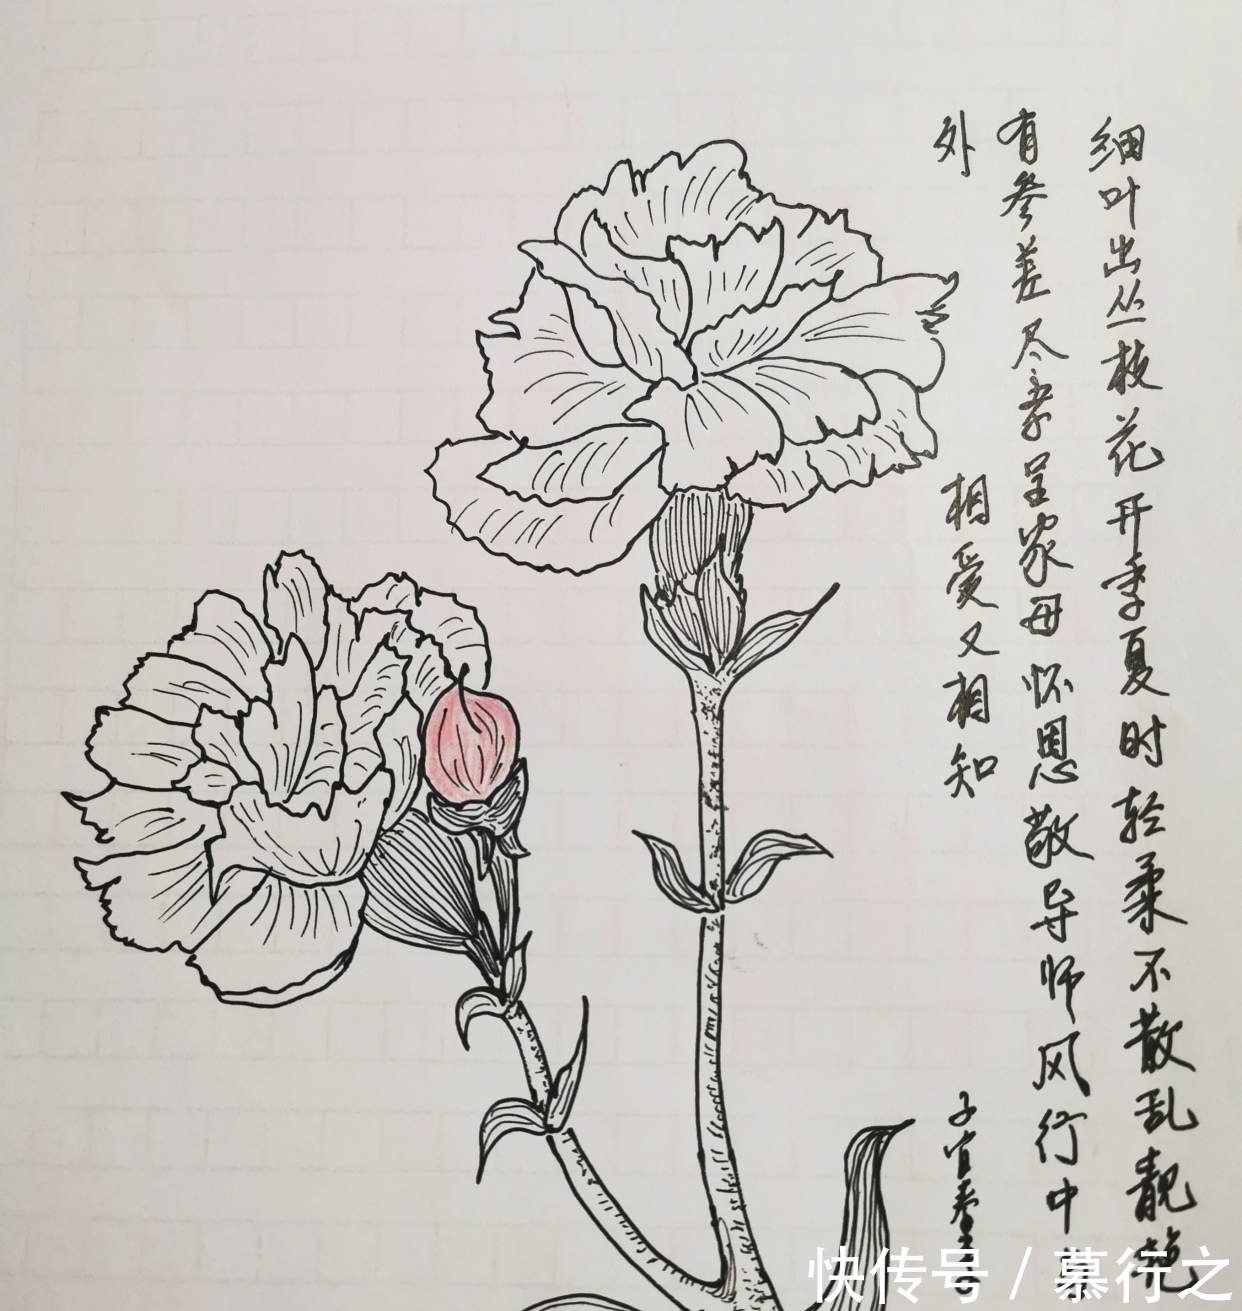 细叶出丛枝花开季夏时轻柔不散乱靓艳
有参差尽孝呈家母怀恩敬导师风行中
外 相爱又相知
子宜
快传号/慕行之